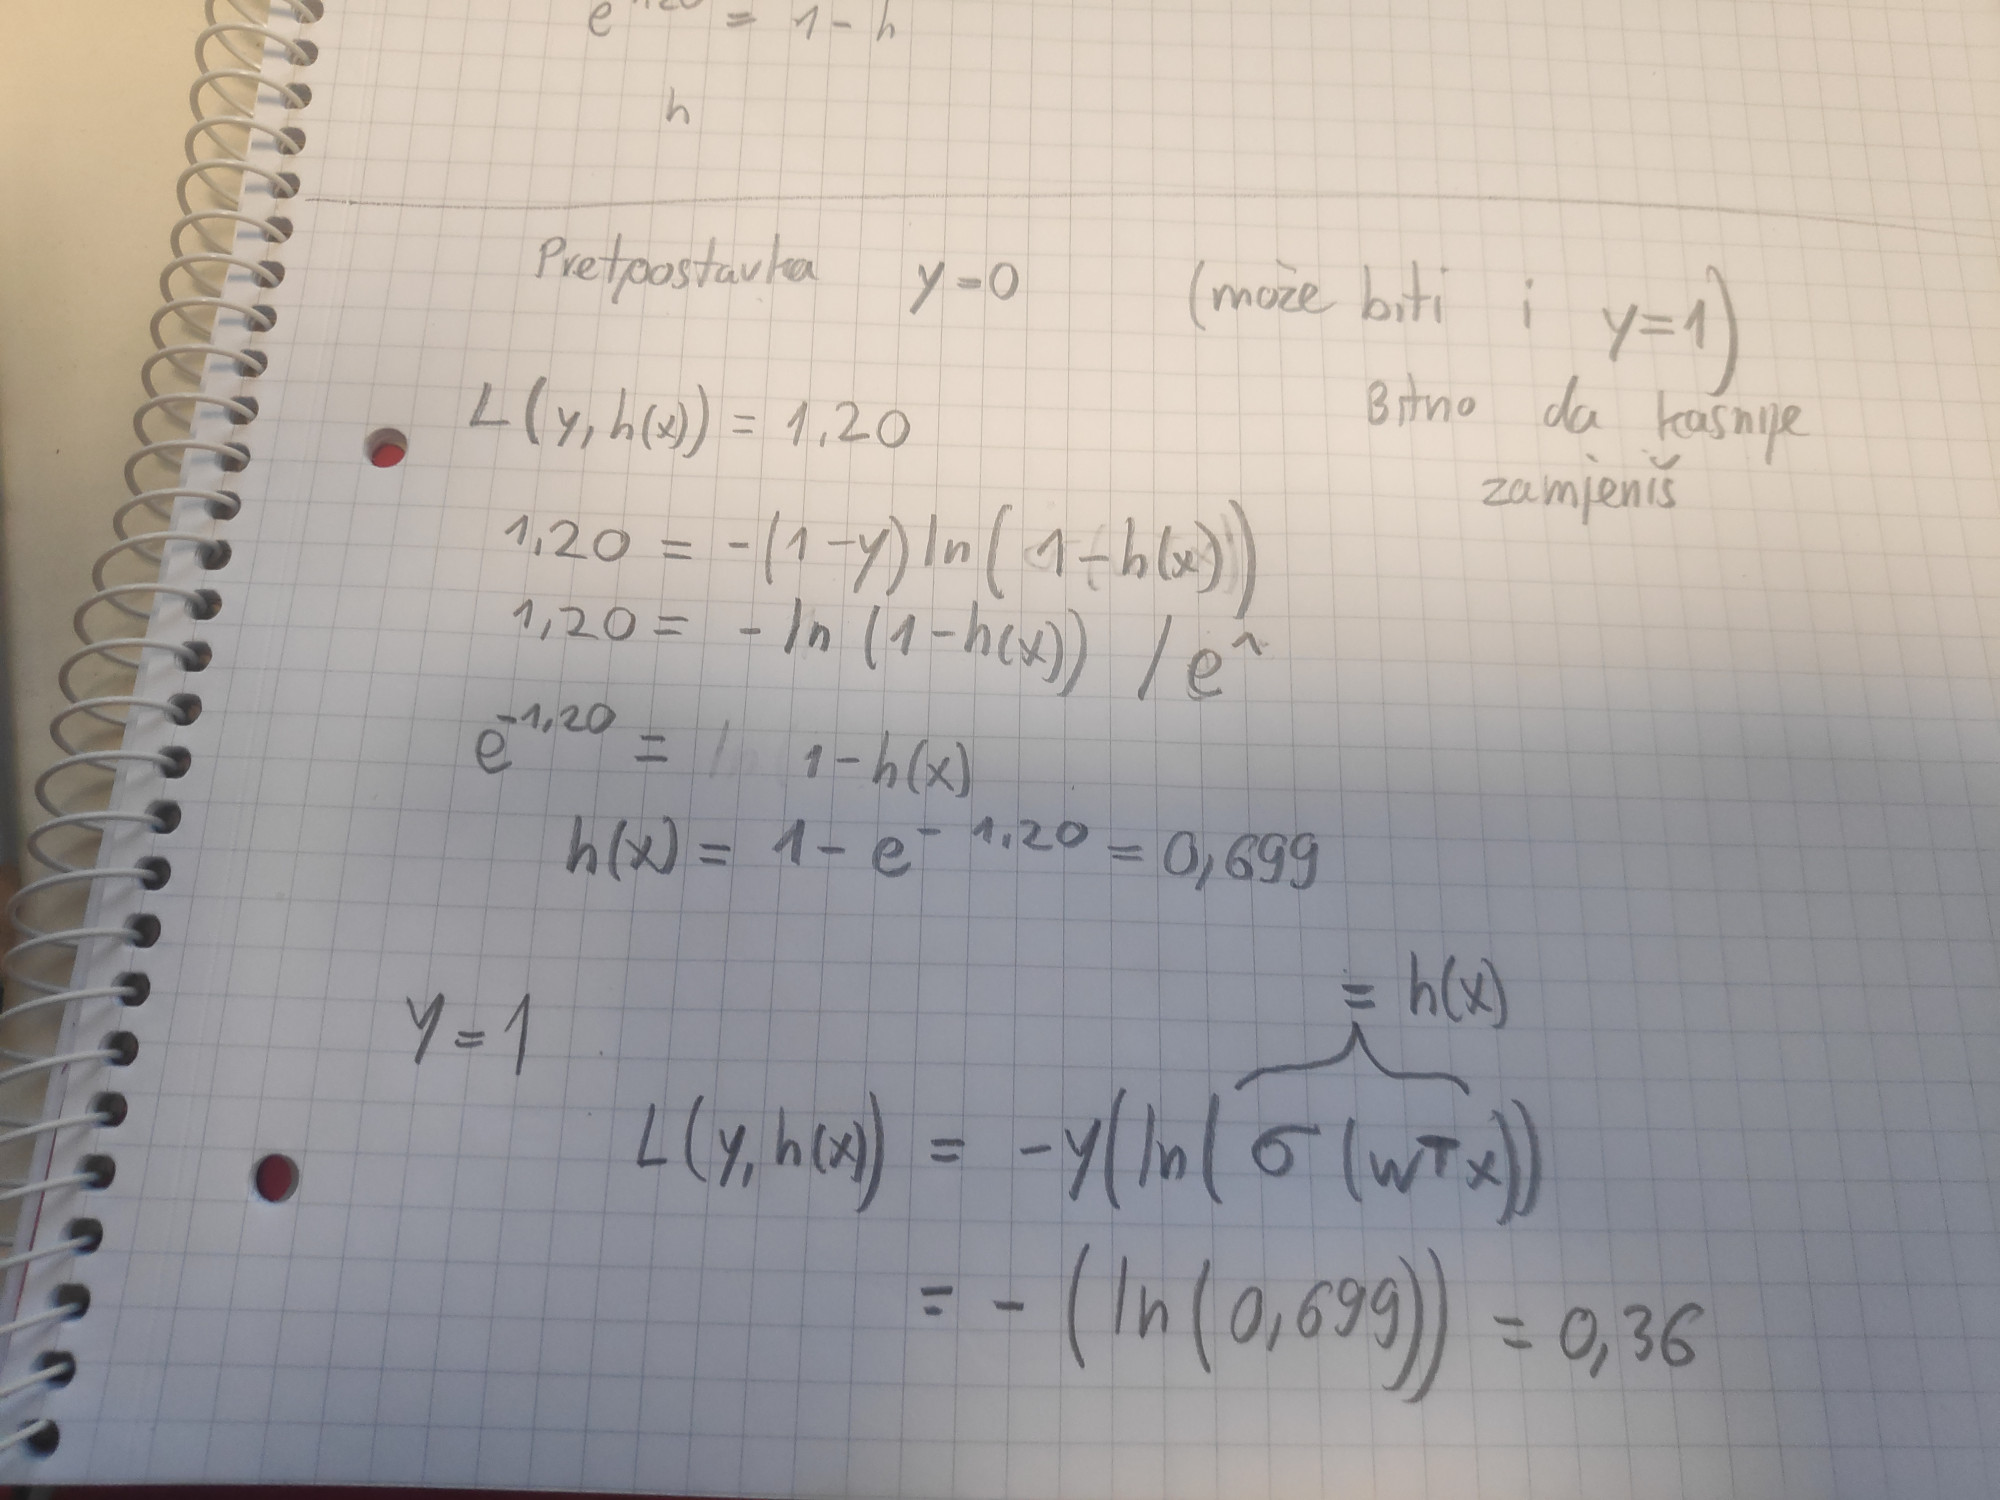 e^1,20 = 1 - h
h
Pretpostavka y=0 (može biti i y=1)
Bitno da kasnije
zamjeniš
L(y, h(x)) = 1,20
1,20 = -(1-y) ln(1-h(x))
1,20 = - ln (1-h(x)) / e^
e^-1,20 = 1-h(x)
h(x) = 1 - e^-1,20 = 0,699
= h(x)
y=1
L(y, h(x)) = -y(ln(σ(wTx))
= - (ln(0,699)) = 0,36